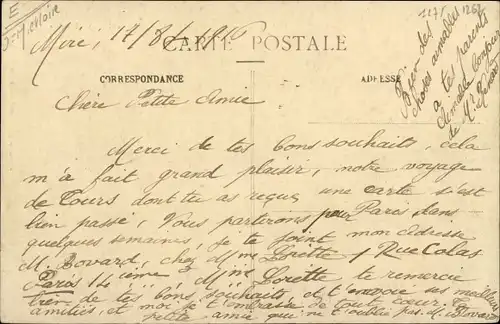 E
Miré, 17/8/
CARTE POSTALE
CORRESPONDANCE
ADRESSE
Chère Petite Amie
Merci de tes bons souhaits, cela
m'a fait grand plaisir, notre voyage
de Tours dont tu as reçue une carte s'est
bien passé, Vous partirons pour Paris dans
quelques semaines, je te joint mon adresse
M. Bovard, chez Mme Lorette 1 Rue Colas
Paris 14 ième Mme Lorette te remercie
bien de tes bons souhaits et t'envoie ses meilleures
amitiés et moi je t'embrasse de tout cœur. Ta
petite amie qui ne t'oublie pas. M. Bovard
Bien des
choses aimables
à tes parents
de